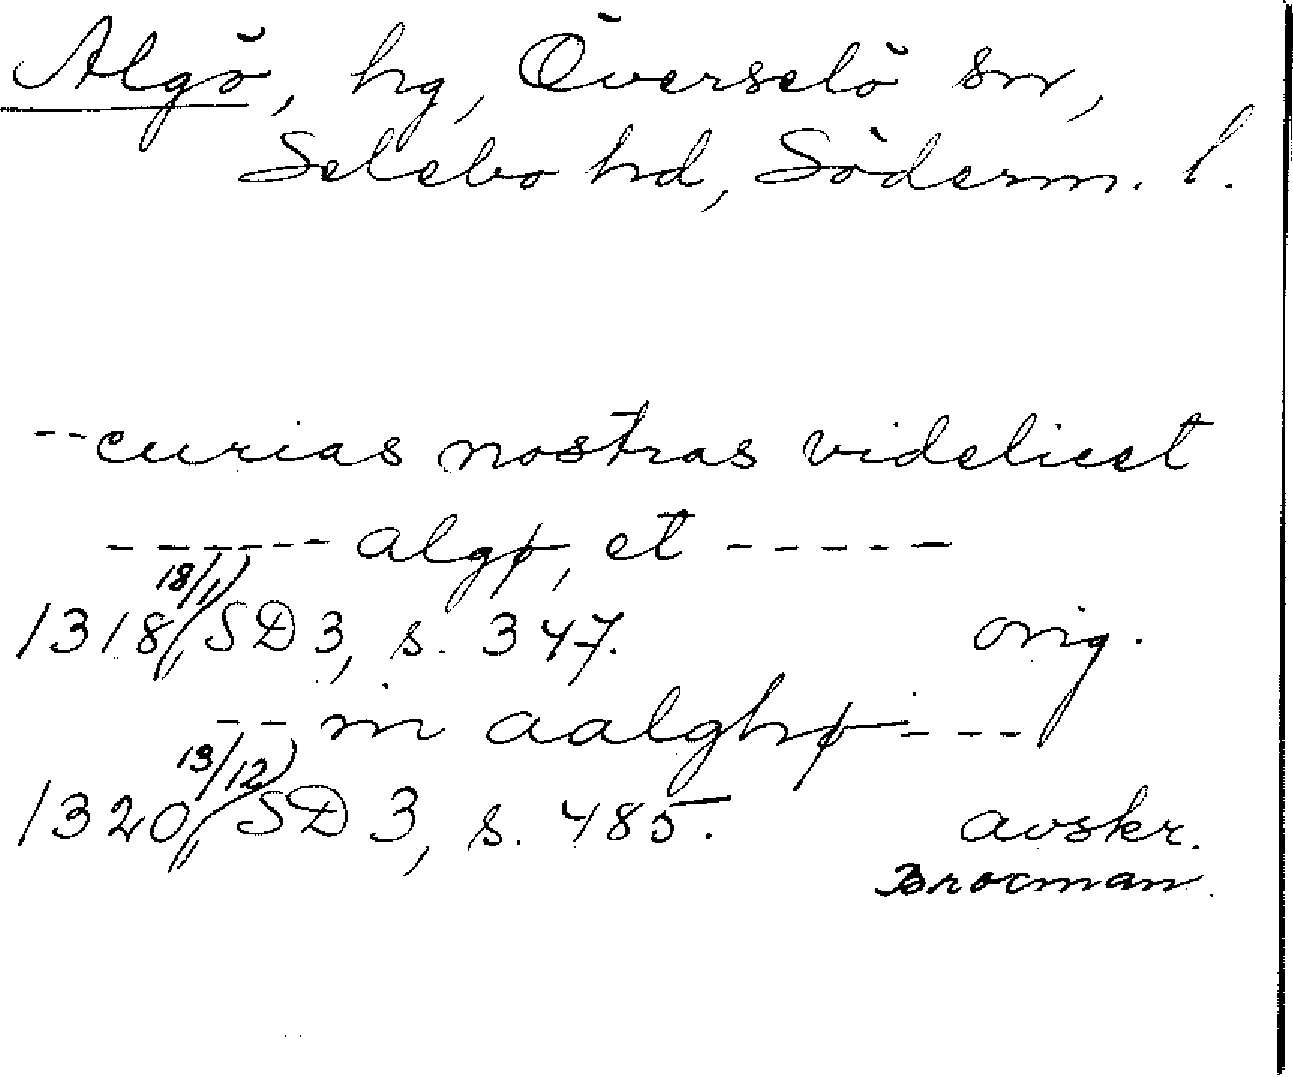 Algö, hg, Överselö sn,
Selebo hd, Söderm. l.
-- curias nostras videlicet
------ algø, et -----
1318 18/1) SD 3, s. 347. orig.
-- in aalghø ---
1320 13/12) SD 3, s. 485. avskr.
Brocman.